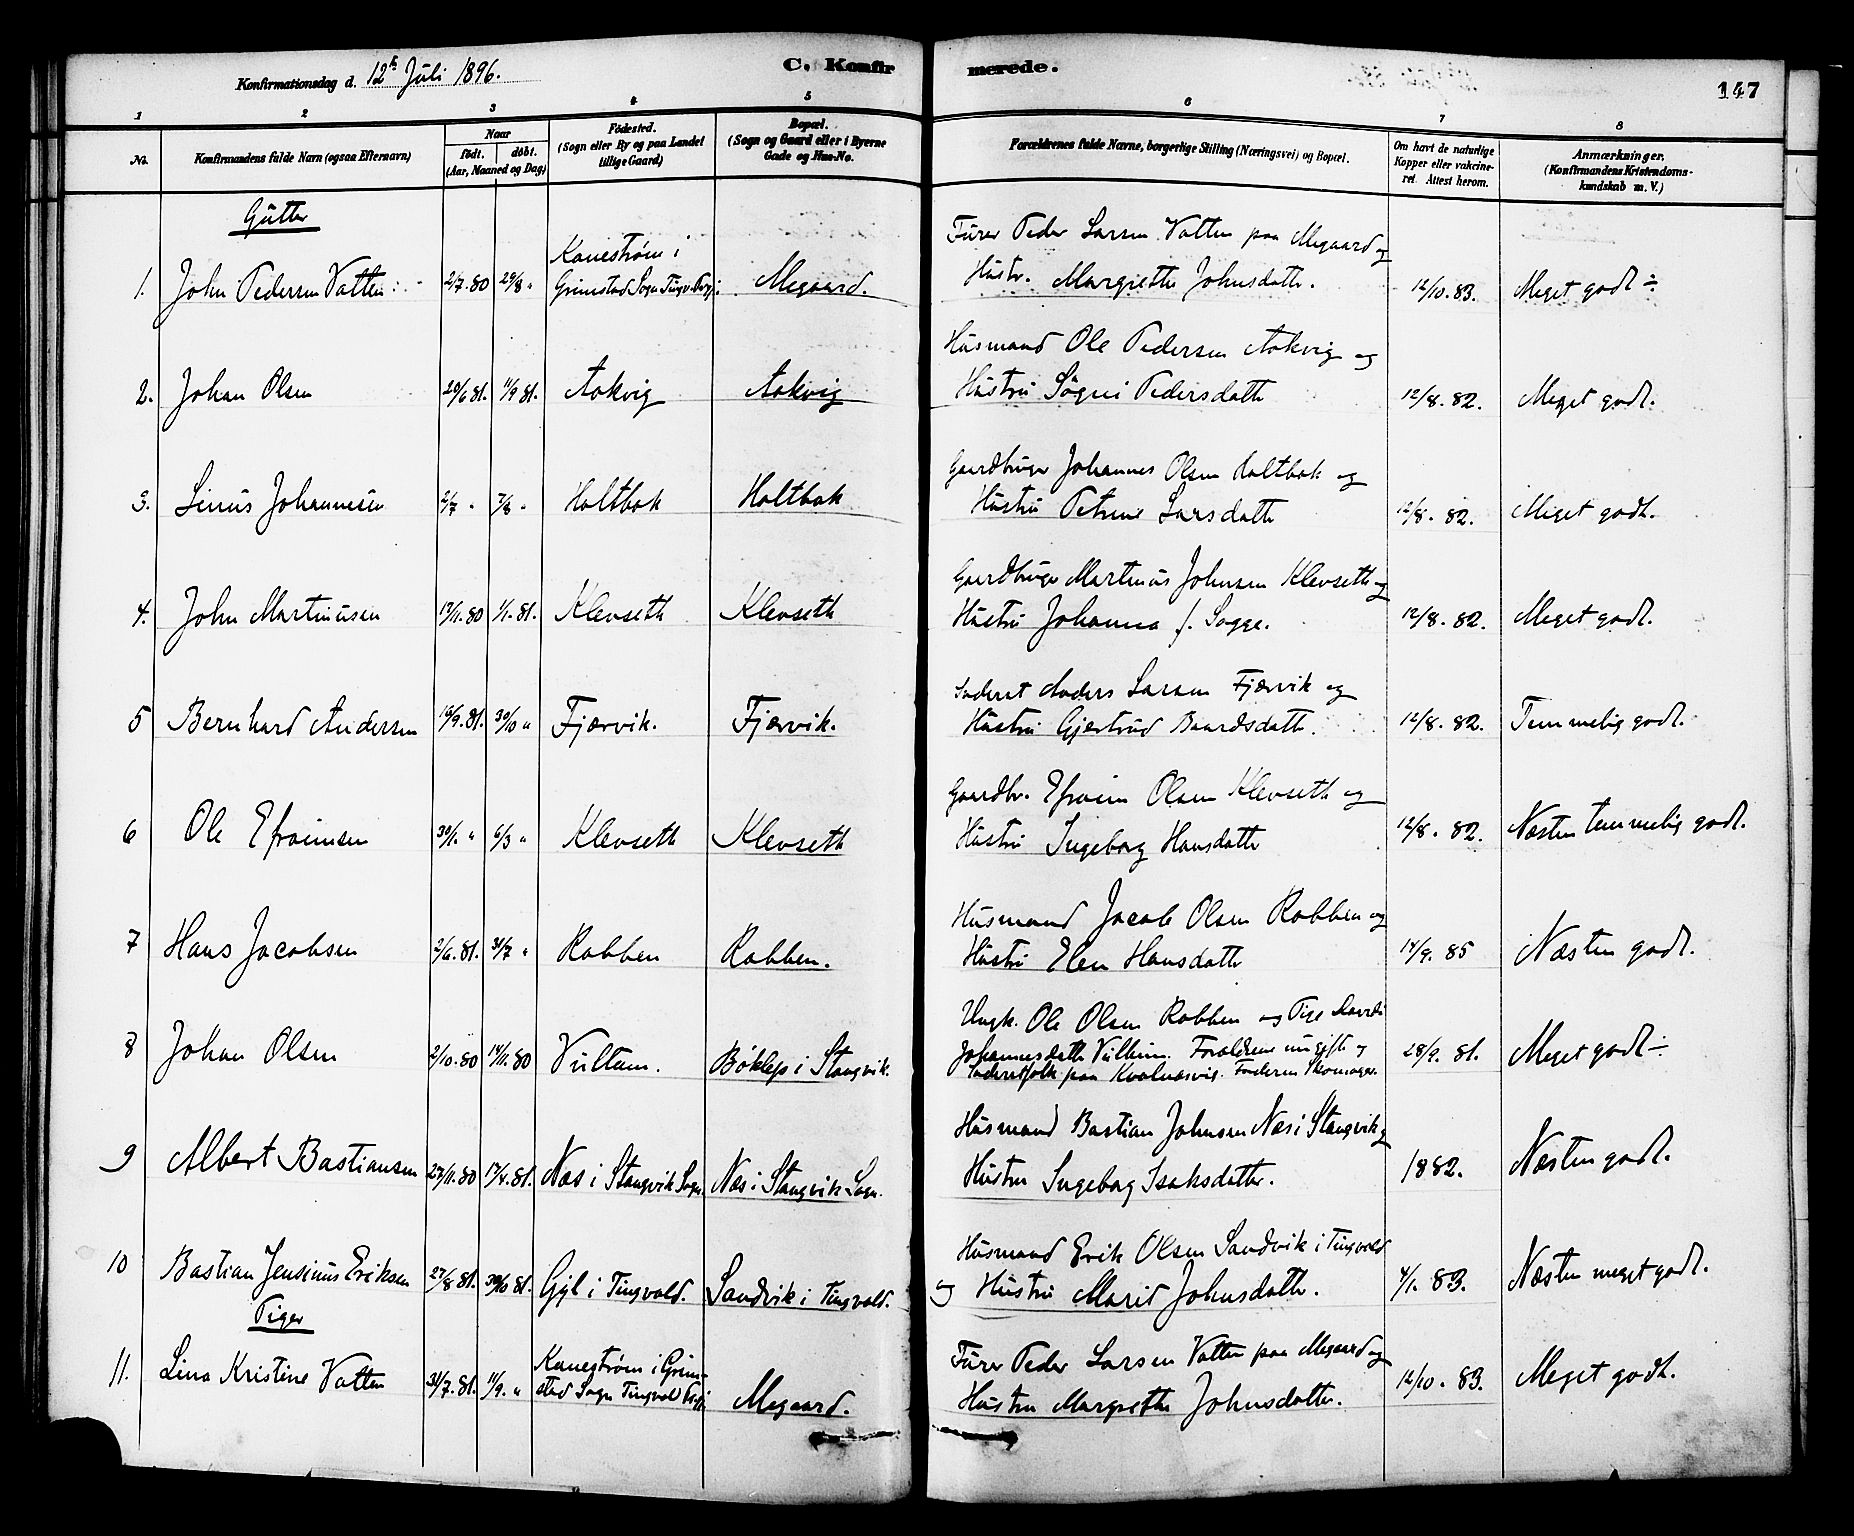 Konfirmationsdag d. 12te Juli 1896.
C. Konfirmerede.
147
1 2 3 4 5 6 7 8
No.
Konfirmandens fulde Navn (ogsaa Efternavn)
Naar
født. døbt.
(Aar, Maaned og Dag)
Fødested.
(Sogn eller By og paa Landet
tillige Gaard)
Bopæl.
(Sogn og Gaard eller i Byerne
Gade og Hus-No.
Forældrenes fulde Navne, borgerlige Stilling (Næringsvei) og Bopæl.
Om havt de naturlige
Kopper eller vakcine-
ret. Attest herom.
Anmærkninger.
(Konfirmandens Kristendoms-
kundskab m. V.)
Gutter
1. John Pedersen Vatten 2/7.80 29/8 "
Kanestrøm i
Grimstad Sogn Tingv.
Megaard.
Peder Larsen Vatten paa Megaard og
Hustr. Margrethe Johnsdatter.
12/10.83. Meget godt ÷
2. Johan Olsen 20/6 81. 11/9 81. Aakvig Aakvig
Husmand Ole Pedersen Aakvig og
Hustru Sögni Pedersdatter
12/8.82. Meget godt.
3. Linus Johannesen 2/7 " 7/8 " Holtbak Holtbak
Gaardbruger Johannes Olsen Holtbak og
Hustru Petrine Larsdatter
12/8.82. Meget godt.
4. John Martinusen 17/11.80 1/1.81. Klevseth Klevseth
Gaardbruger Martinus Johnsen Klevseth og
Hustru Johanna f. Sogge.
12/8.82. Meget godt.
5 Bernhard Andersen 16/9.81. 30/10 " Fjærvik. Fjærvik.
Inderst Anders Larsen Fjærvik og
Hustru Gjertrud Baardsdatter.
12/8.82. Temmelig godt.
6 Ole Efraimsen 30/1. " 6/3 " Klevseth Klevseth
Gaardbr. Efraim Olsen Klevseth og
Hustru Ingeborg Hansdatter
12/8.82. Næsten temmelig godt.
7 Hans Jacobsen 2/6.81. 31/7 " Robben Robben.
Husmand Jacob Olsen Robben og
Hustru Elen Hansdatter
14/9.85 Næsten godt.
8 Johan Olsen 2/10.80 14/11.80 Vultum. Bøklep i Stangvik.
Ungk. Ole Olsen Robben og Pige
Johannesdatter Forældrene ungifte og
Inderstfolk paa Kvalnæsvig. Faderen Skomager.
28/9.81. Meget godt ÷
9 Albert Bastiansen 27/11.80 17/4.81. Næs i Stangvik Sogn. Næs i Stangvik Sogn.
Husmand Bastian Johnsen Næs i Stangvik og
Hustru Ingeborg Isaksdatter.
1882. Næsten godt.
10 Bastian Jensinus Eriksen 27/8 81. 30/10 81. Gyl i Tingvold. Sandvik i Tingvold.
Husmand Erik Olsen Sandvik i Tingvold
og Hustru Marit Johnsdatter.
4/1.83. Næsten meget godt.
Piger
11. Lina Kristine Vatten 31/7.81. 11/9. "
Kanestrøm i Grim-
stad Sogn Tingvold
Megaard.
Peder Larsen Vatten paa Megaard og
Hustru Margrethe Johnsdatter.
12/10.83. Meget godt.